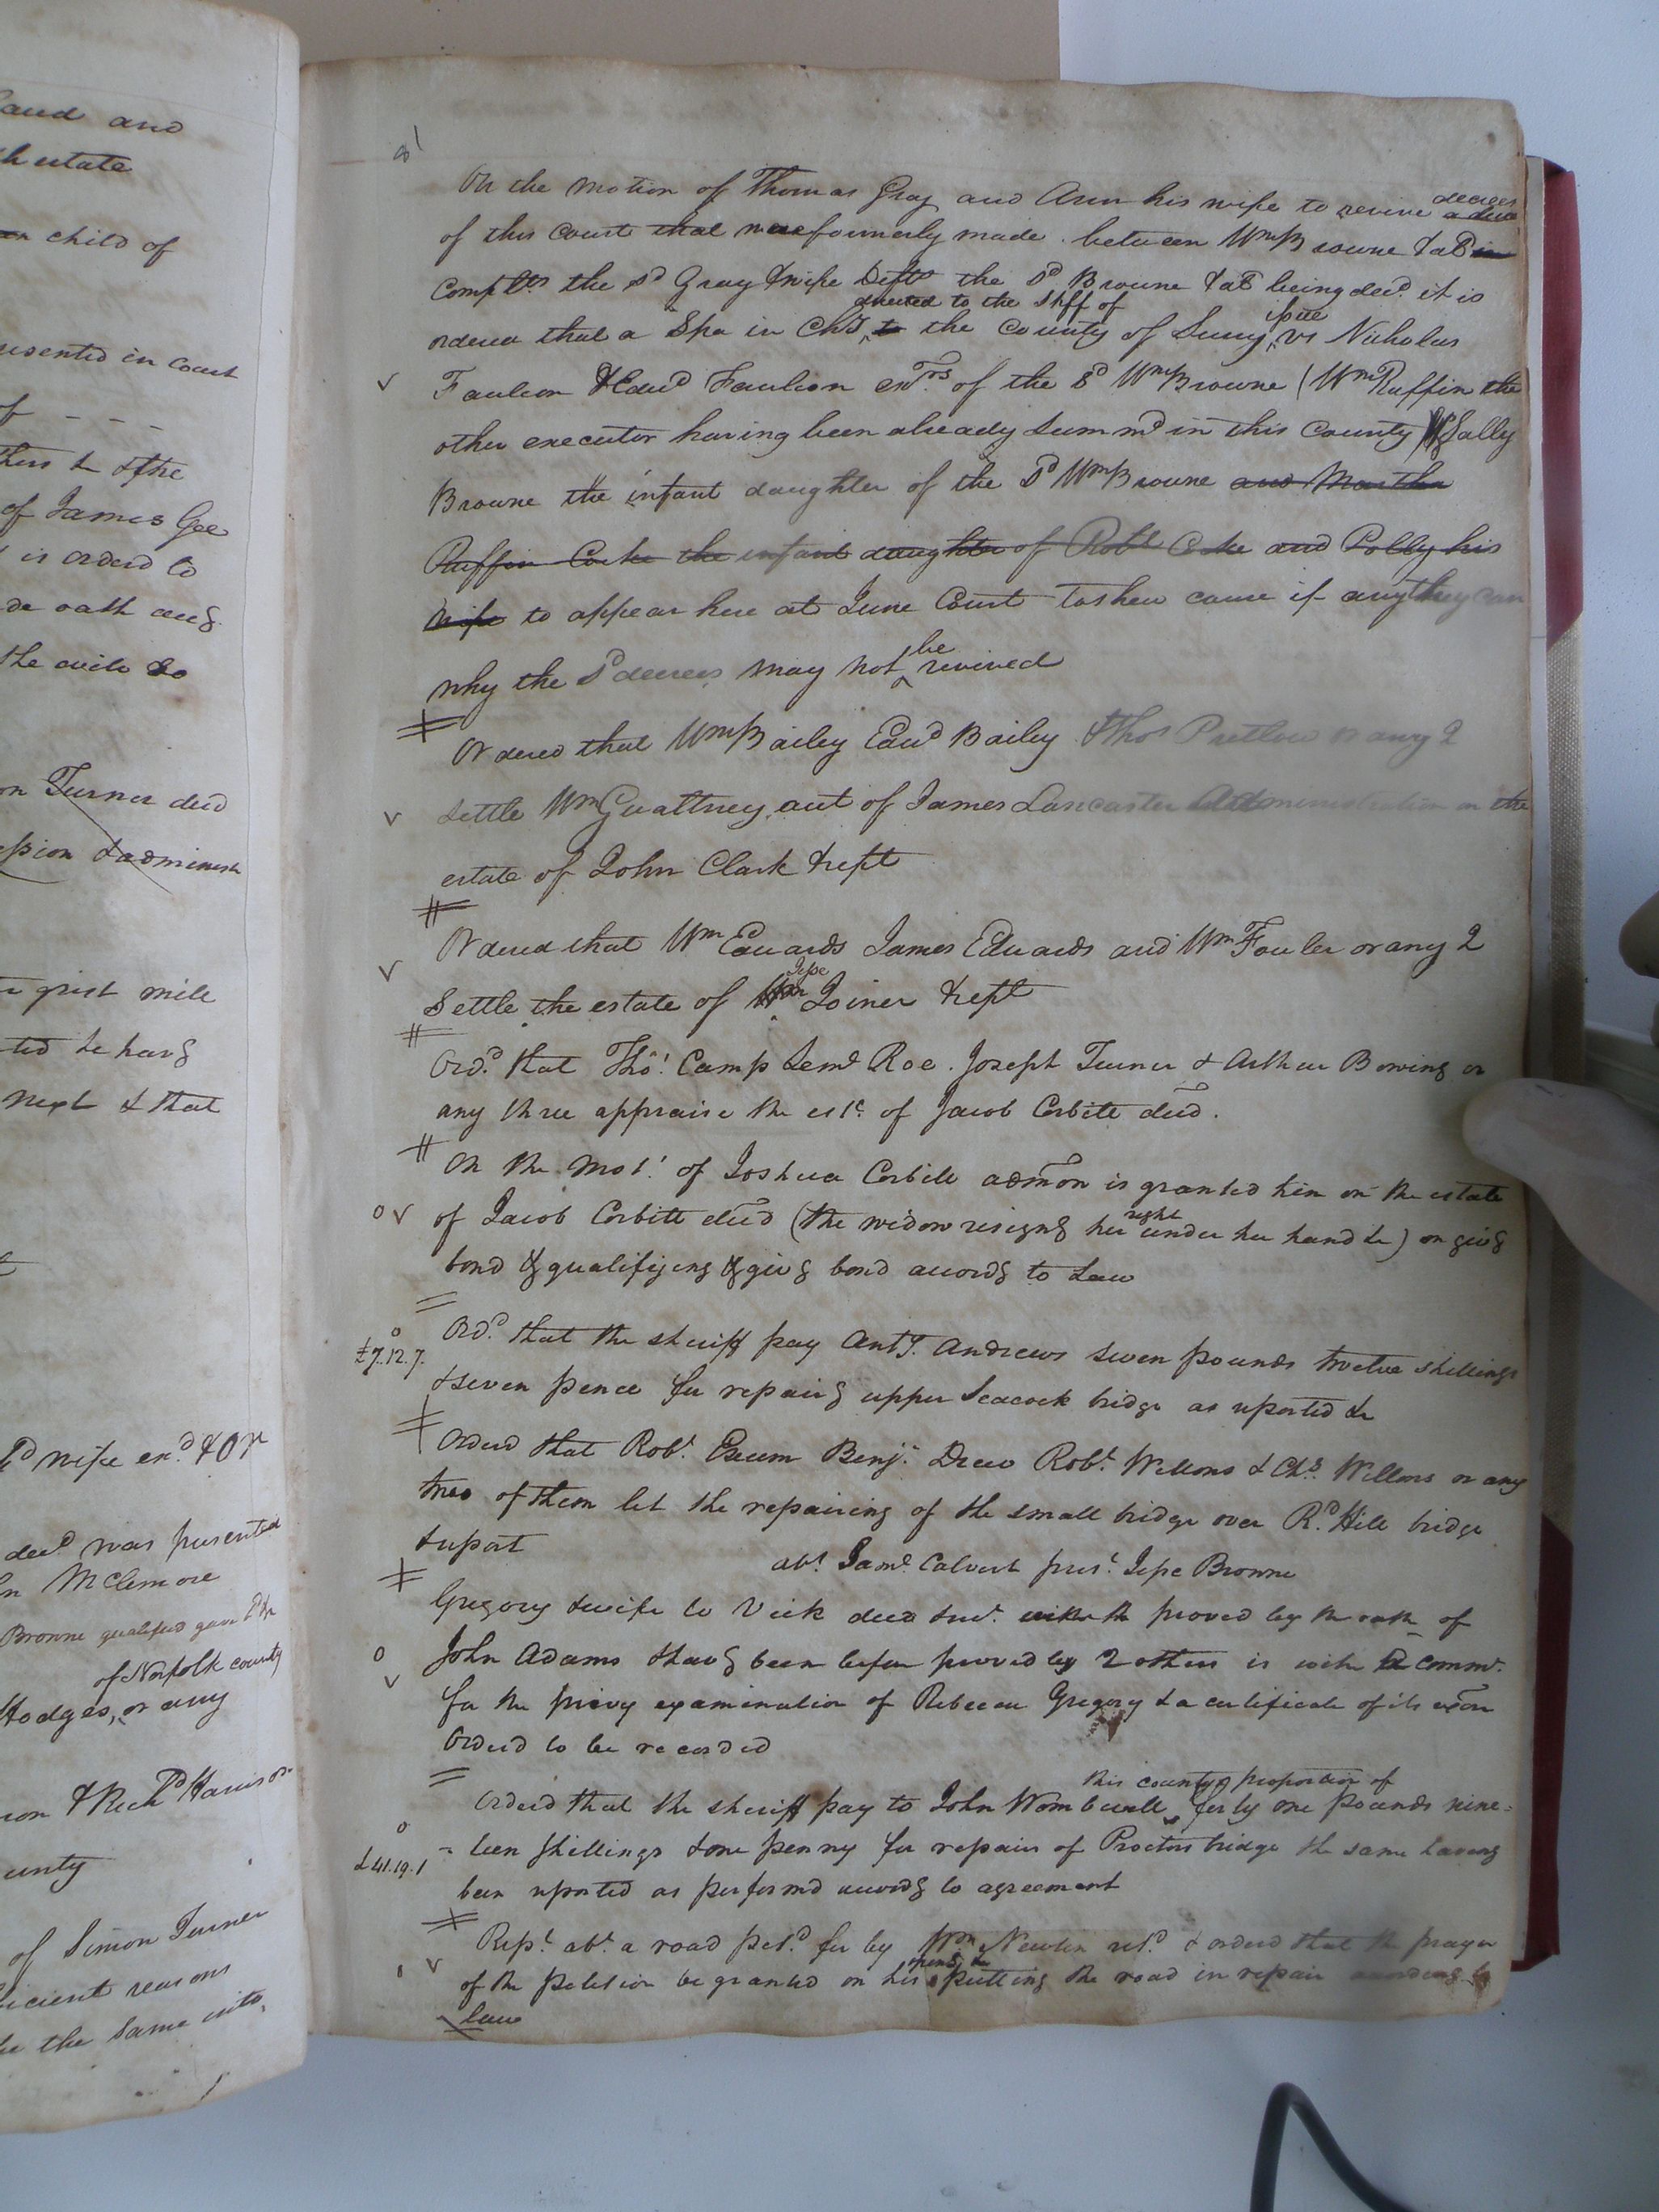 Land and
h estate
an child of
resented in Court
of - - -
thers & the
of James Gee
is orderd to
de oath and
the will to
on Turner decd
ession & administ
grist mill
ted & havg
next & that
sd wife exd & OR
decd was presented
n McLemore
Browne qualifed gave
of Norfolk county
Hodges, or any
son & Richd Harrison
unty
of Simon Turner
ficient reasons
the same into
On the motion of Thomas Gray and Ann his wife to revive a decree decrees
of this Court that was formerly made between Wm Browne & al in
Complts the sd Gray & wife Defts the sd Browne & al being decd it is
directed to the shff of issue
ordered that a Spa in Ch to the County of Surry vs Nicholas
v Faulcon & Edwd Faulcon exrs of the sd Wm Browne (Wm Ruffin the
other executor having been already summd in this County) & Sally
Browne the infant daughter of the sd Wm Browne and Martha
Ruffin Cocke the infant daughter of Robt Cocke and Polly his
wife to appear here at June Court to shew cause if any they can
why the sd decrees may not be revived
Ordered that Wm Bailey Edwd Bailey & Thos Pretlow or any 2
v settle Wm Gwaltney act of James Lancaster Administration on the
estate of John Clark & rept
Ordered that Wm Edwards James Edwards and Wm Fowler or any 2
v Settle the estate of Wm Jesse Joiner & rept
Ordd that Thos Camp Leml Roe Joseph Turner & Arthur Bowing or
any three appraise the este of Jacob Corbitt decd.
On the mot of Joshua Corbitt admon is granted him on the estate
o v of Jacob Corbitt decd (the widow resigng her right under her hand &c) on givg
bond & qualifying & givg bond accordg to Law
Ordd that the sheriff pay Anty Andrews seven pounds twelve shillings
o £7.12.7.
& seven pence for repairg upper Seacock bridge as reported &c
Orderd that Robt Exum Benjn Drew Robt Willons & Chs Willons or any
two of them let the repairing of the small bridge over Rd Hill bridge
& report
abt Saml Calvert prest Jesse Browne
Gregory & wife to Vick deed & ret proved by the oath of
o v John Adams & havg been before proved by 2 others is with commn
for the privy examination of Rebecca Gregory & a certificate of its exon
Orderd to be recorded
this countys proportion of
Orderd that the sheriff pay to John Wombwell forty one pounds nine=
o £41.19.1
=teen shillings & one penny for repairs of Proctors bridge the same having
been reported as performd accordg to agreement
Rept abt a road petd for by Wm Newlin retd & orderd that the prayer
v of the petition be granted on his opening & putting the road in repair according to
law